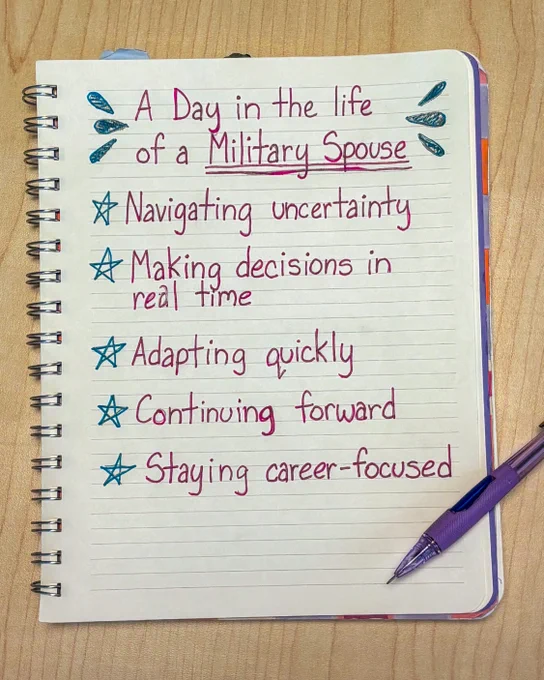 A Day in the life
of a Military Spouse
Navigating uncertainty
Making decisions in
real time
Adapting quickly
Continuing forward
Staying career-focused